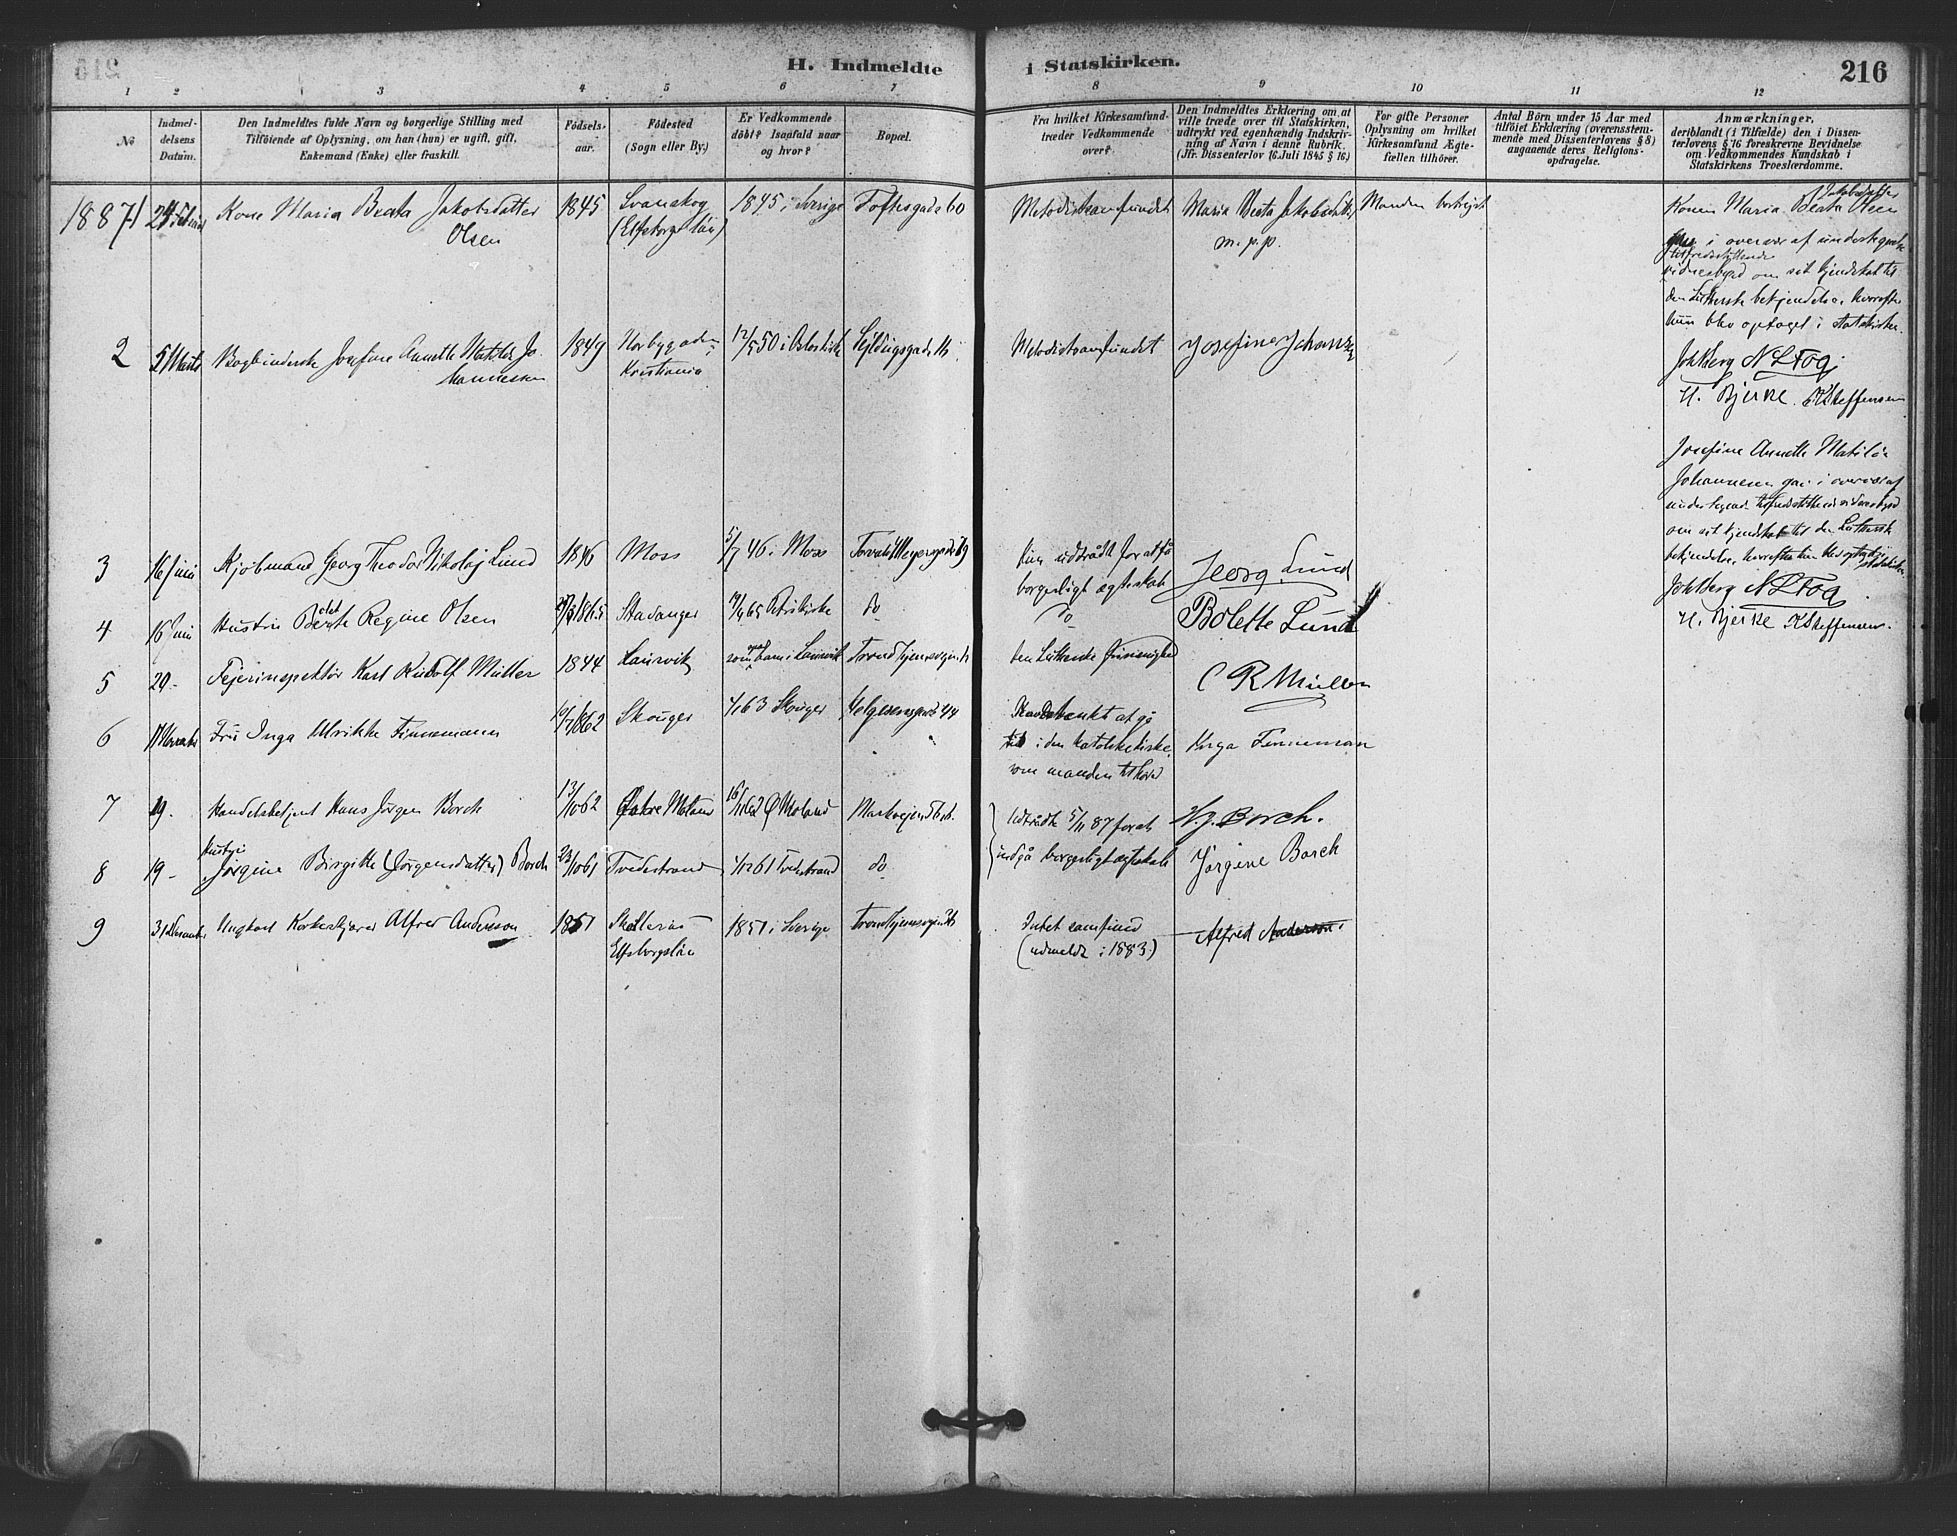 H. Indmeldte i Statskirken.
216
1 2 3 4 5 6 7 8 9 10 11 12
No
Indmel-
delsens
Datum.
Den Indmeldtes fulde Navn og borgerlige Stilling med
Tilföiende af Oplysning, om han (hun) er ugift, gift,
Enkemand (Enke) eller fraskilt.
Födsels-
aar.
Födested
(Sogn eller By.)
Er Vedkommende
döbt? Isaafald naar
og hvor?
Bopæl.
Fra hvilket Kirkesamfund
træder Vedkommende
over?
Den Indmeldtes Erklæring om at
ville træde over til Statskirken,
udtrykt ved egenhændig Indskriv-
ning af Navn i denne Rubrik.
(Jfr. Dissenterlov 16 Juli 1845 § 16.)
For gifte Personer
Oplysning om hvilket
Kirkesamfund Ægte-
fællen tilhörer.
Antal Börn under 15 Aar med
tilföiet Erklæring (overensstem-
mende med Dissenterlovens § 8)
angaaende deres Religions-
opdragelse.
Anmærkninger,
deriblandt (i Tilfælde) den i Dissen-
terlovens § 16 foreskrevne Bevidnelse
om Vedkommendes Kundskab i
Statskirkens Troeslærdomme.
1887 1 24 Kone Maria Beata Jakobsdatter
Olsen
1845
Svanskog
(Elfsborgs län)
1845 i Sverige
Toftesgade 60
Metodistsamfundet
Maria Beata Jakobsdatter
m. p. p.
Manden bortreist
Konen Maria Beata Jakobsdatter Olsen
i overvær af undertegnede
tilfredsstillende
vidnesbyrd om sit kjendskab til
den Lutherske bekjendelse, hvorefter
hun blev optaget i statskirken.
Joh Berg N L Fog
H. Bjerke. K Steffensen
2 5 Marts Bogbinderske Josefine Annette Matilde Jo-
hannessen
1849
Kristiania
12/5 50 i Oslo kirke
Metodistsamfundet
Josefine Johansen
Josefine Annette Matilde
Johannesen gav i overvær af
undertegnede tilfredsstillende vidnesbyrd
om sit kjendskab til den Lutherske
bekjendelse, hvorefter hun blev optaget i statskirken
Joh Berg N L Fog
H. Bjerke K Steffensen.
3 16 Juni Kjöbmand Georg Theodor Nikolaj Lund
1846 Moss 5/7 46 i Moss
Torvald Meyersgade 79
Kun udtrådt for at få
borgerligt ægteskab
Georg Lund
4 16 Juni Hustru Bolette Regine Olsen
Stavanger Petrikirke do
do
Bolette Lund
5 29 - Fejerinspektör Karl Rudolf Müller
1844 Laurvik som barn i Laurvik
den Lutherske frimenighed
C R Müller
6 11 Fru Inga Ulrikke Finnemann
19/7 1862 Skouger Skouger Helgesensgade 44
i den katolske kirke,
som manden tilhører
Inga Finneman
7 19. Handelsbetjent Hans Jörgen Borch
13/10 62 Østre Moland 16/11 62 Ø Moland
Udtrådte 5/11 87 for at
indgå borgerligt ægteskab
H. J. Borch.
8 19 - Hustru Jörgine Birgitte (Jörgensdatter) Borch
23/10 61 Tvedestrand Tvedestrand do
Jörgine Borch
9 31 December Ungkarl Korkeskjærer Alfred Andersson
1851
Elfsborgslän
1851 i Sverige
Intet samfund
(udmeldt i 1883)
Alfred Anderson.